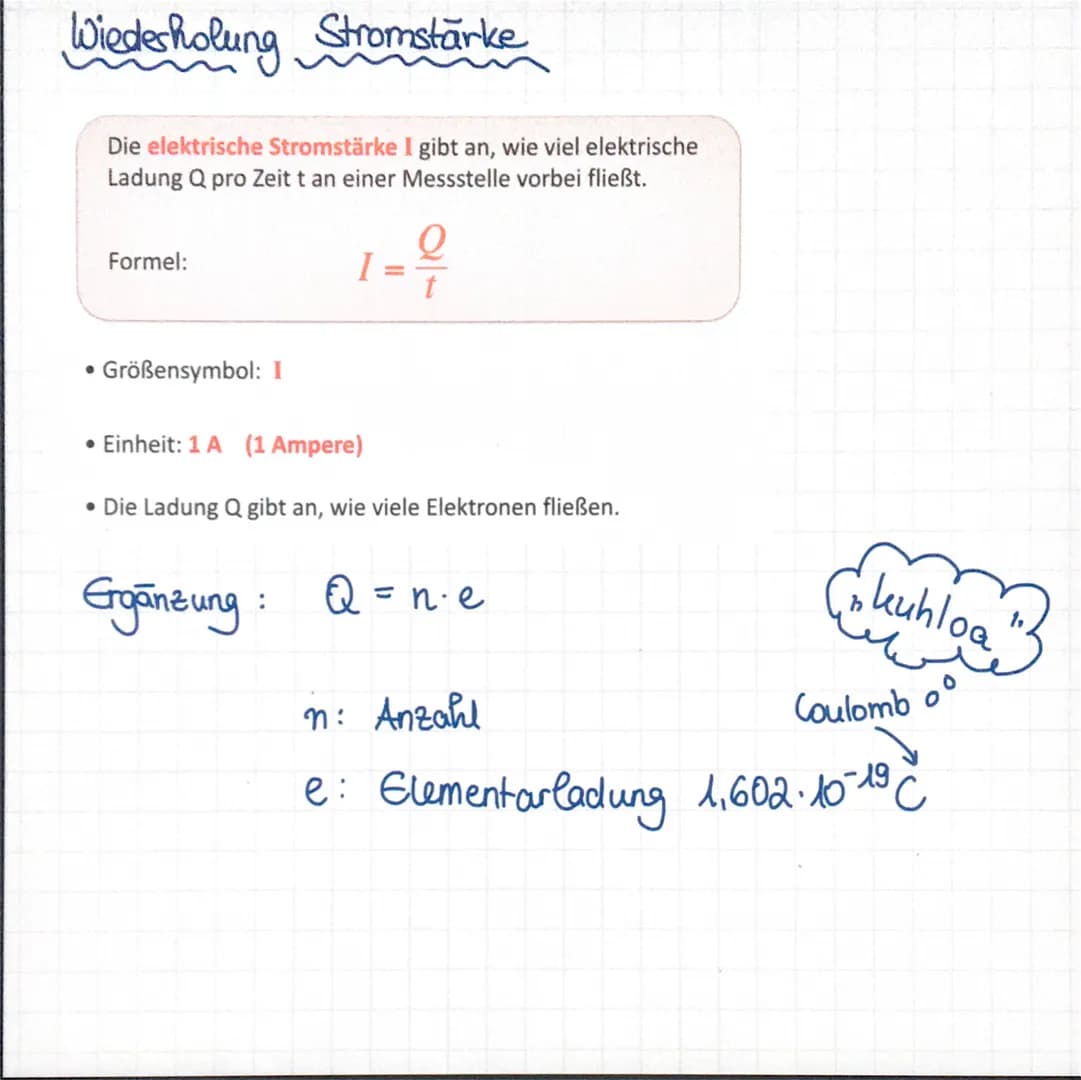 Wiederholung Stromstärke
Die elektrische Stromstärke I gibt an, wie viel elektrische
Ladung Q pro Zeit t an einer Messstelle vorbei fließt.
Formel: I = Q/t
• Größensymbol: I
• Einheit: 1 A (1 Ampere)
• Die Ladung Q gibt an, wie viele Elektronen fließen.
Ergänzung: Q = n·e
„kuhloa“
n: Anzahl
Coulomb
e: Elementarladung 1,602·10⁻¹⁹ C